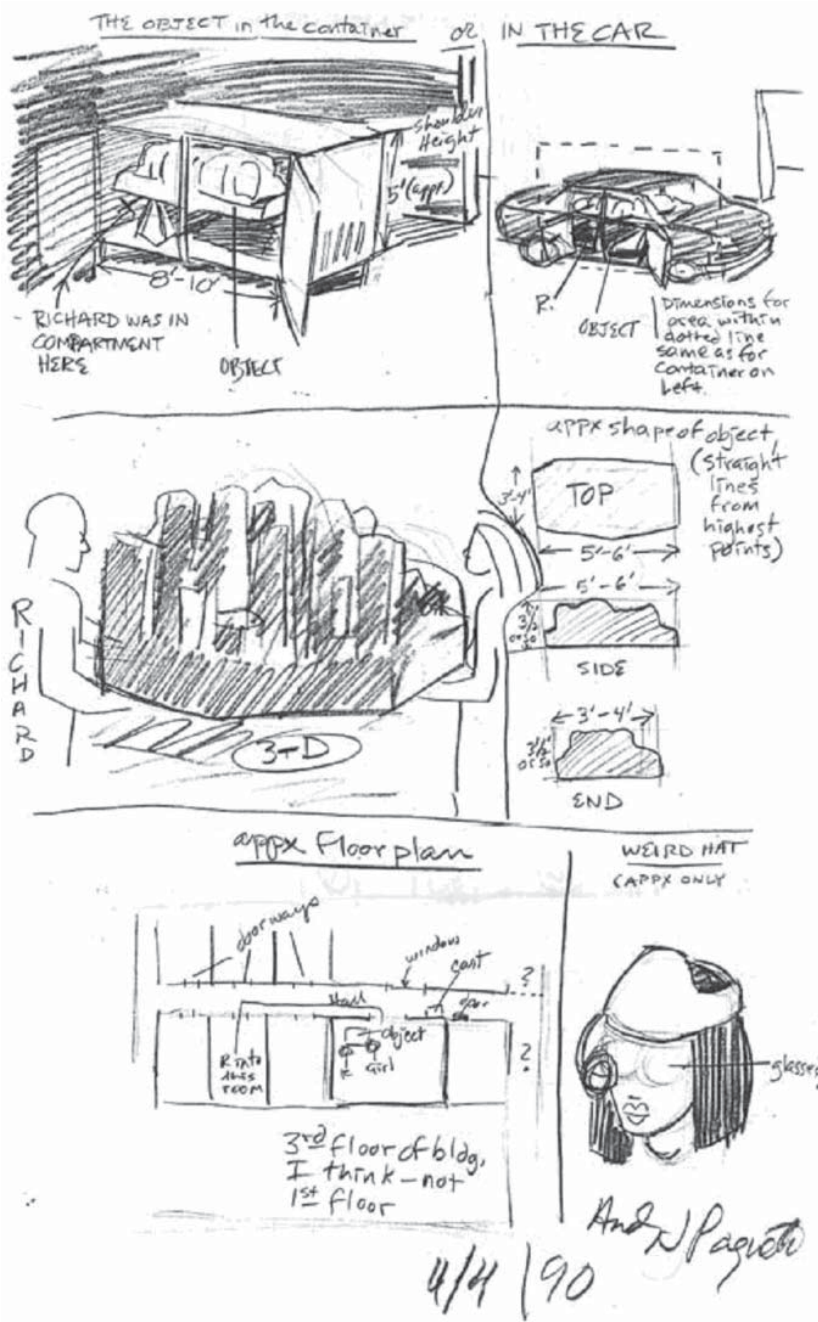 THE OBJECT in the container
or
IN THE CAR
shoulder
Height
5' (appx.)
8'-10'
RICHARD WAS IN
COMPARTMENT
HERE
OBJECT
R.
OBJECT
Dimensions for
area within
dotted line
same as for
container on
Left.
appx shape of object
(straight
lines
from
highest
points)
3'-4'
TOP
5'-6'
5'-6'
3½'
or so
SIDE
3'-4'
3½'
or so
END
RICHARD
3-D
appx Floorplan
doorways
window
cart
?
Hall
door
object
?
R into
this
room
R
Girl
3rd floor of bldg,
I think - not
1st floor
WEIRD HAT
(APPX ONLY
glasses
4/4/90